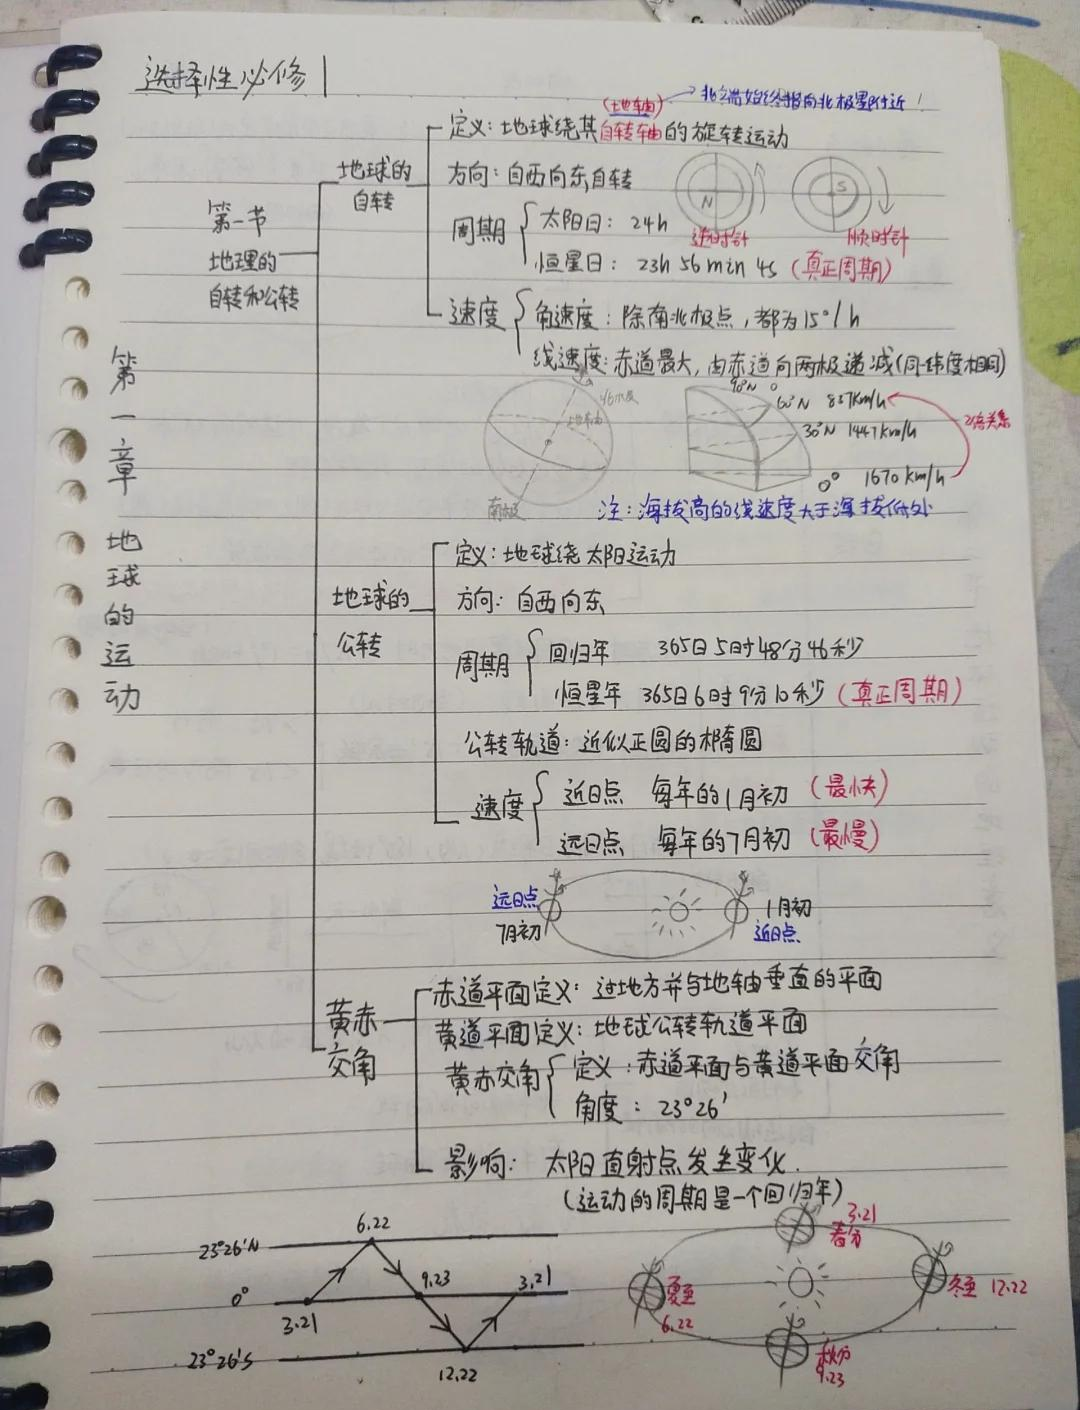 选择性必修1
第一章 地球的运动
第一节
地理的
自转和公转
地球的
自转
(地轴) → 北端始终指向北极星附近!
定义:地球绕其自转轴的旋转运动
方向:自西向东自转
N
逆时针
S
顺时针
周期
太阳日:24h
恒星日:23h 56min 4s (真正周期)
速度
角速度:除南北极点,都为15°/h
线速度:赤道最大,由赤道向两极递减(同纬度相同)
地轴
南极
90°N 0
60°N 837km/h
30°N 1447km/h
0° 1670km/h
2倍关系
注:海拔高的线速度大于海拔低处
地球的
公转
定义:地球绕太阳运动
方向:自西向东
周期
回归年 365日5时48分46秒
恒星年 365日6时9分10秒 (真正周期)
公转轨道:近似正圆的椭圆
速度
近日点 每年的1月初 (最快)
远日点 每年的7月初 (最慢)
远日点
7月初
1月初
近日点
黄赤
交角
赤道平面定义:过地方并与地轴垂直的平面
黄道平面定义:地球公转轨道平面
黄赤交角
定义:赤道平面与黄道平面交角
角度:23°26′
影响:太阳直射点发生变化.
(运动的周期是一个回归年)
23°26′N
0°
23°26′S
3.21
6.22
9.23
12.22
3.21
3.21
春分
夏至
6.22
冬至 12.22
秋分
9.23